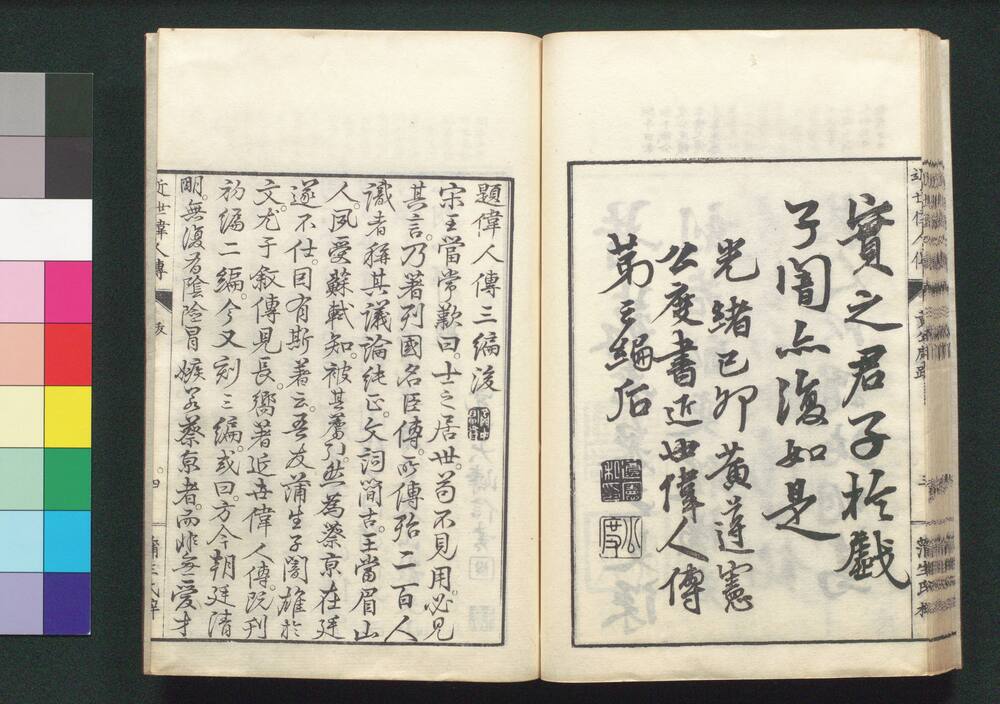 實之君子於戲
子闇亦復如是
光緒己卯黃遵憲
公度書近世偉人傳
第三編后
題偉人傳三編後
宋王當常歎曰。士之居世。苟不見用。必見
其言。乃著列國名臣傳。所傳殆二百人
識者稱其議論純正。文詞簡古。王當眉山
人。夙受蘇軾知。被其薦引。然為蔡京在廷
遂不仕。因有斯著云。吾友蒲生子闇雄於
文。尤于敘傳見長。嚮著近世偉人傳。既刊
初編二編。今又刻三編。或曰。方今朝廷清
明。無復有陰險冒嫉若蔡京者。而非無愛才
近世偉人傳
四